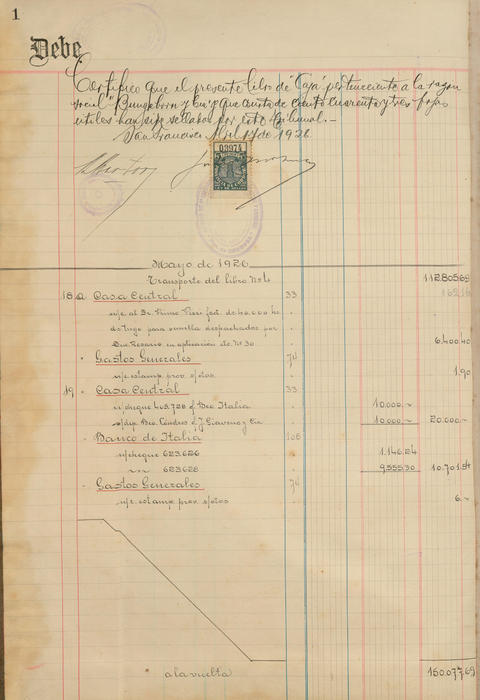 1
Debe
Certifico que el presente libro de "Caja" perteneciente a la razón
social "Bungeborn y Cia" que consta de ciento cuarenta y tres hojas
utiles han sido sellados por este Tribunal.—
San Francisco Abril 14 de 1926.
03074
Mayo de 1926
Transporte del libro No 4 112.805.69
18 a Casa Central 33
n/e al Sr. Primo
de trigo para semilla despachados por
Suc. Rosario en aplicación cto. No 30 6.400.40
" Gastos Generales 74
n/e estamp. prov. s/ctos 1.90
19 " Casa Central 33
n/cheque 409.728 c/ Bco Italia 10.000.—
10.000.— 20.000.—
" Banco de Italia 108
n/cheque 623.626 1.146.24
" " 623628 9.555.30 10.701.54
" Gastos Generales 74
n/e. estamp. prov. s/ctos 6.—
a la vuelta 150.077.69